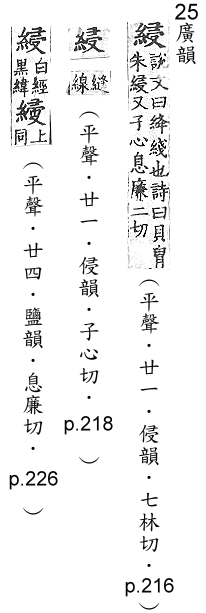 25
廣韻
綅說文曰絳綫也詩曰貝冑朱綅又子心息廉二切(平聲．廿一．侵韻．七林切．p.216)
綅縫線(平聲．廿一．侵韻．子心切．p.218)
綅白經黑緯 上同(平聲．廿四．鹽韻．息廉切．p.226)